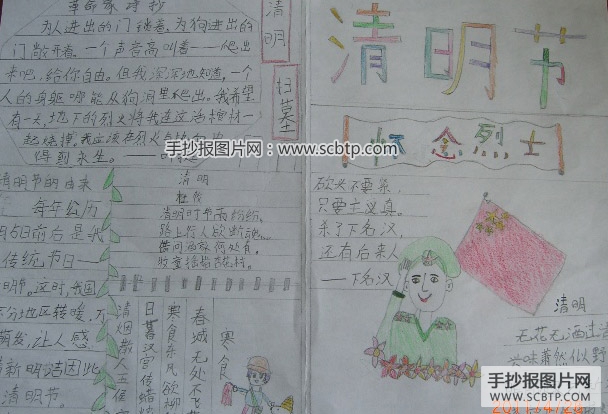 革命家诗抄
为人进出的门锁着,为狗进出的
门敞开着。一个声音高叫着——爬出
来吧,给你自由。但我深深地知道,一个
人的身躯哪能从狗洞里爬出。我希望
有一天,地下的烈火将我连这活棺材一
起烧掉,我应该在烈火
得到永生。——
清明
扫墓
清明节
怀念烈士
手抄报图片网:www.scbtp.com
清明节的由来
每年公历
明5日前后是我
传统节日—
明节。这时,我国
分地区转暖,万
萌发,让人感
清新明洁因此
清明节。
清明
杜牧
清明时节雨纷纷,
路上行人欲断魂。
借问酒家何处有,
牧童遥指杏花村。
寒食
春城无处不飞
寒食东风欲柳
日暮汉宫传蜡
清烟散入五侯
砍头不要紧,
只要主义真。
杀了下名汉,
还有后来人
——下名汉
清明
无花无酒过
兴味萧然似野
手抄报图片网
WWW.SCBTP.COM